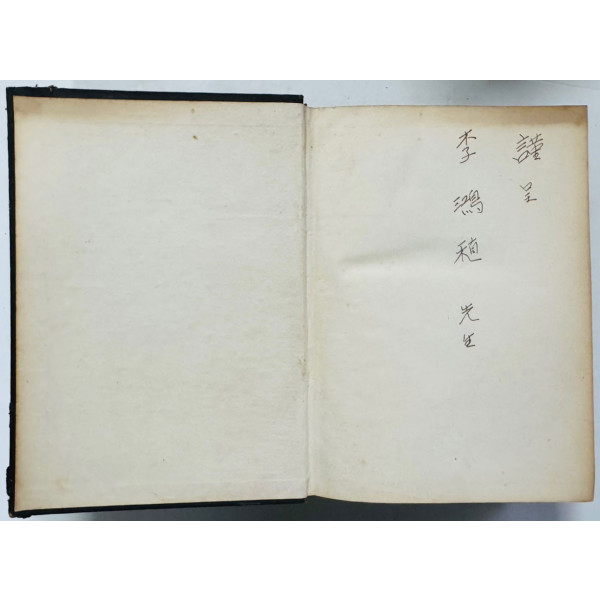 謹呈
李鴻稙 先生